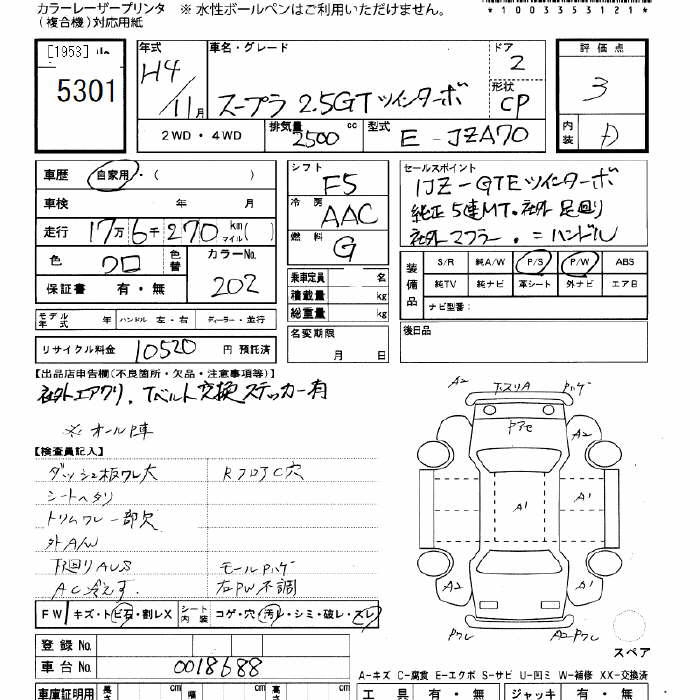 カラーレーザープリンタ ※ 水性ボールペンはご利用いただけません。
(複合機)対応用紙
*1003353121*
[1953]
5301
年式 車名・グレード ドア 評価点
H4 11月 スープラ 2.5GT ツインターボ 2 3
形状 CP
2WD・4WD 排気量 2500 cc 型式 E-JZA70 内装 D
車歴 自家用・( )
シフト F5
セールスポイント
1JZ-GTE ツインターボ
車検 年 月
冷房 AAC
純正5速MT。社外足回り
走行 17万6千270 km マイル( )
燃料 G
社外マフラー。〃ハンドル
色 クロ 色替 カラーNo. 202
保証書 有・無
乗車定員 名
積載量 kg
総重量 kg
装備品 S/R 純A/W P/S P/W ABS
純TV 純ナビ 革シート 外ナビ エアB
ナビ型番:
モデル年式 年 ハンドル 左・右 ディーラー・並行
名変期限 月 日
後日品
リサイクル料金 10520 円 預託済
【出品店申告欄(不良箇所・欠品・注意事項等)】
社外エアクリ、Tベルト交換ステッカー有
【検査員記入】
ダッシュ板ワレ大 RフロアC穴
シートヘタリ
トリムワレ一部欠
外A/W
下廻りAUS モールハゲ
AC冷えず 右PW不調
FW キズ・トビ石・割レX シート内装 コゲ・穴・汚レ・シミ・破レ・スレ
A2 下スリA ハゲ
A2
A1
A1
A2 A2
Pワレ A2-Pワレ
スペア
登録No.
車台No. 0018688
A-キズ C-腐食 E-エクボ S-サビ U-凹ミ W-補修 XX-交換済
車庫証明用 長さ cm 幅 cm cm
工具 有・無 ジャッキ 有・無